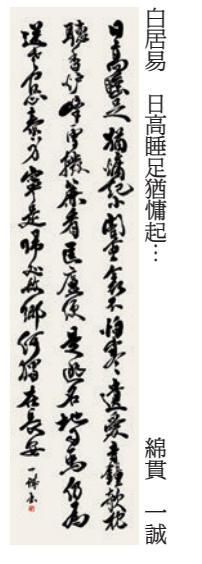 白居易　日高睡足猶慵起…　綿貫　一誠
日高睡足猶慵起小閣重衾不怕寒遺愛寺鐘欹枕
聴香炉峰雪撥簾看匡廬便是逃名地司馬仍為
送老官心泰身寧是帰処故郷何独在長安　一誠書